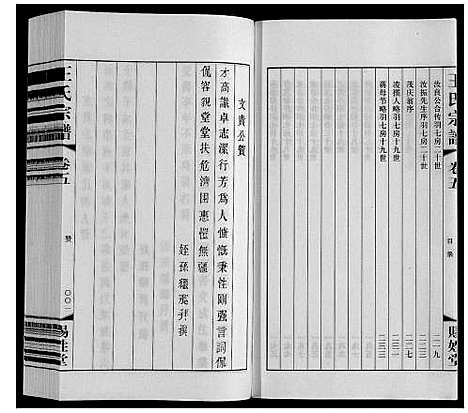 王氏宗譜
卷五
目錄
汝良公合传羽七房二十世
二一九
汝振先生序羽七房二十世
二二三
茂庆翁序
二二七
凌孺人略羽七房十九世
二三一
蒋母节略羽七房十九世
二三三
賜姓堂
文貴公贊
才高識卓志潔行芳為人慷慨秉性剛强言詞侃
侃容貌堂堂扶危濟困惠愷無疆
姪孫 拜撰
王氏宗譜
卷五
贊
〇〇一
賜姓堂